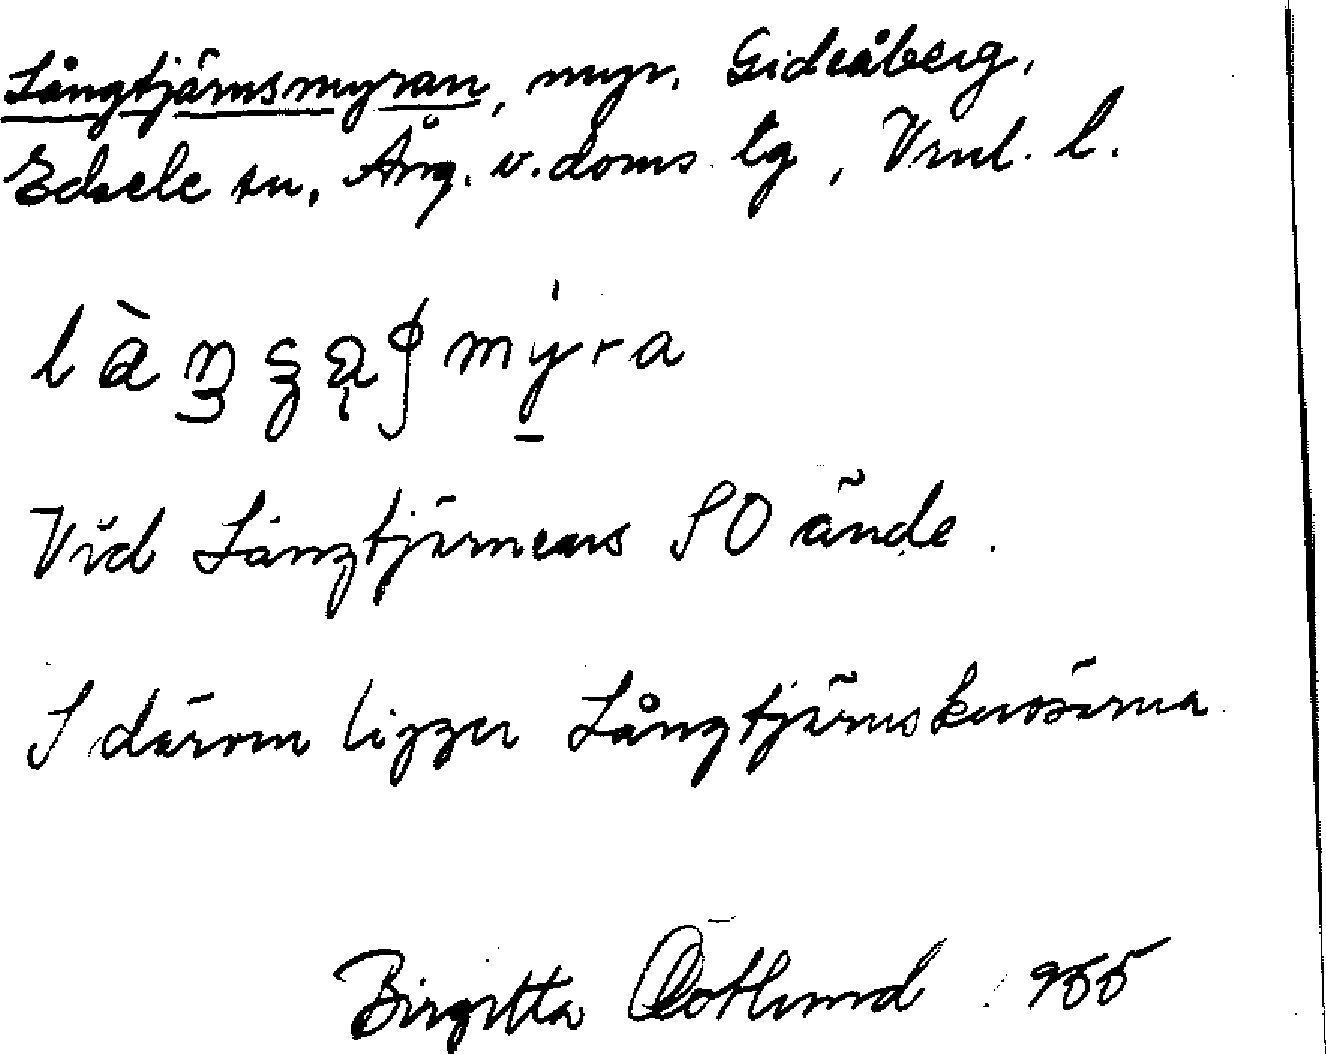 Långtjärnsmyran, myr, Gideåberg,
Edsele sn, Ång. v. doms. lg, Vnl. l.
Vid Långtjärnens SO ände.
S därom ligger Långtjärnskurvorna
Birgitta Östlund 1955